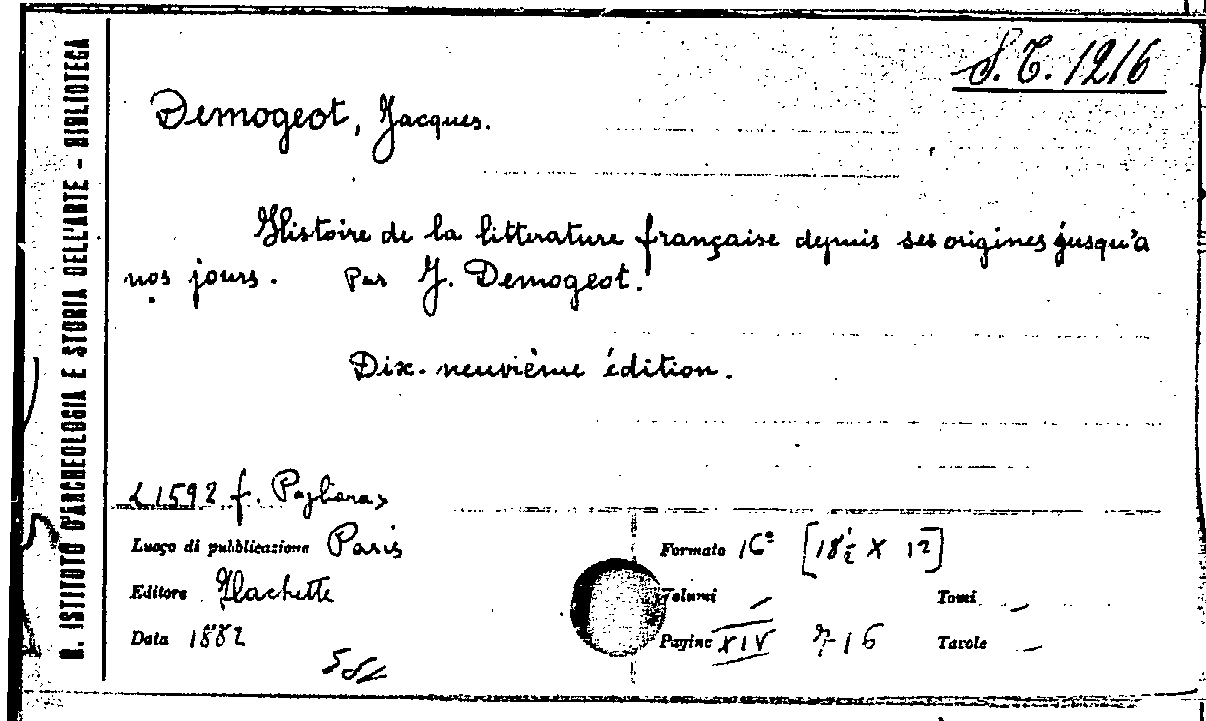 S.T. 1216
R. ISTITUTO D'ARCHEOLOGIA E STORIA DELL'ARTE - BIBLIOTECA
Demogeot, Jacques.
Histoire de la litterature française depuis ses origines jusqu'a
nos jours. Par J. Demogeot.
Dix-neuvième édition.
1592 f. Pagliara
Luogo di pubblicazione Paris
Formato 16° [18½ X 12]
Editore Hachette
Volumi — Tomi —
Data 1882
Pagine XIV 716 Tavole —